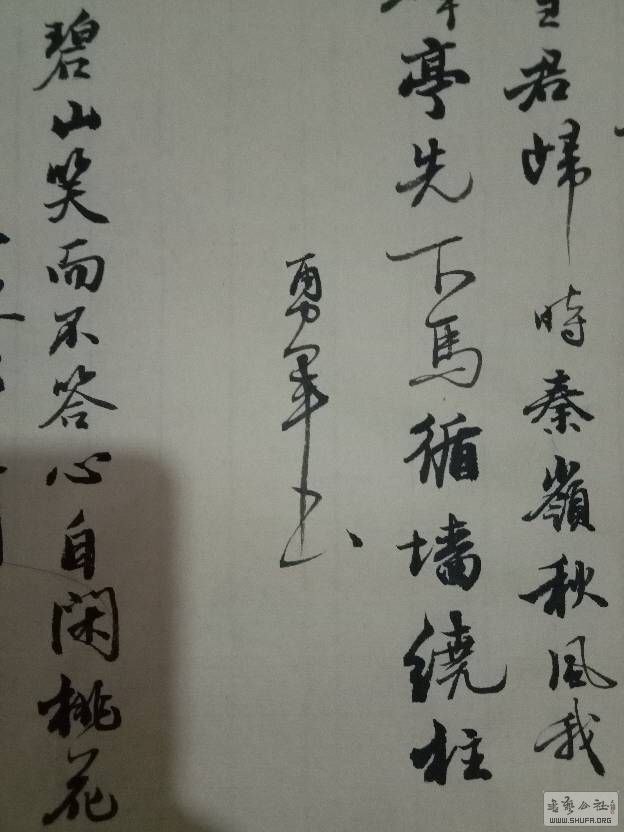 君歸時秦嶺秋風我
亭先下馬循墙繞柱
勇軍书
碧山笑而不答心自閑桃花
WWW.SHUFA.ORG